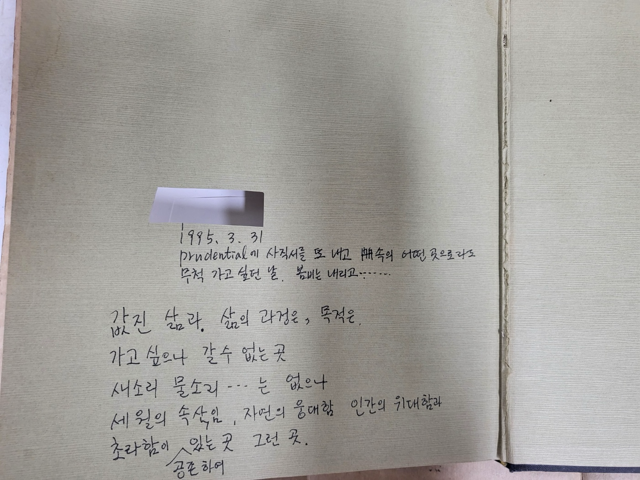 1995. 3. 31
prudential에 사직서를 또 내고 冊속의 어떤 곳으로라도
무척 가고 싶던 날. 봄비는 내리고.......
값진 삶과. 삶의 과정은, 목적은.
가고 싶으나 갈수 없는 곳
새소리 물소리 … 는 없으나
세월의 속삭임, 자연의 웅대함 인간의 위대함과
초라함이 공존하여 있는 곳 그런 곳.